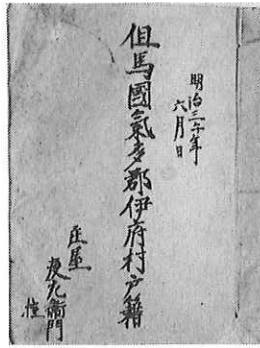 明治三午年
六月日
但馬國氣多郡伊府村戸籍
庄屋